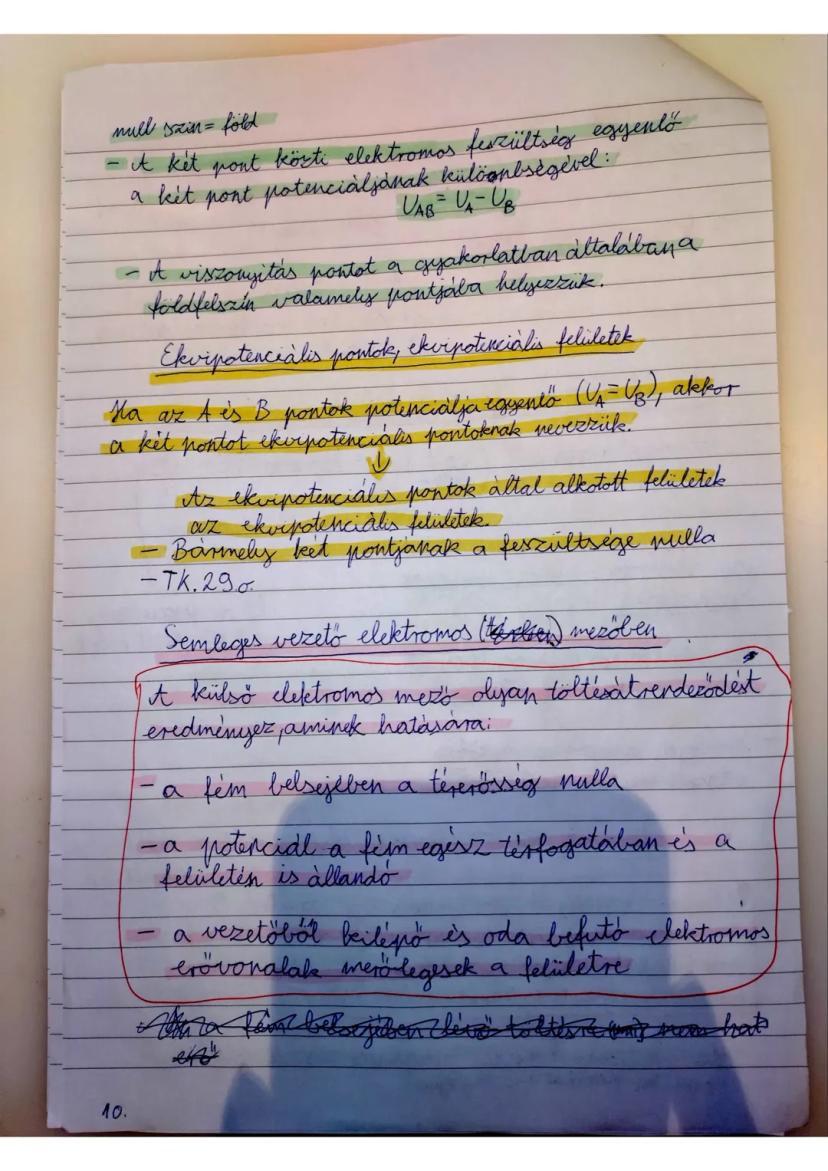 null szin = föld
- A két pont közti elektromos feszültség egyenlő
a két pont potenciáljának különbségével:
U_AB = U_A - U_B
- A viszonyitás pontot a gyakorlatban általában a
földfelszín valamely pontjába helyezzük.
Ekvipotenciális pontok, ekvipotenciális felületek
Ha az A és B pontok potenciálja egyenlő (U_A = U_B), akkor
a két pontot ekvipotenciális pontoknak nevezzük.
↓
Az ekvipotenciális pontok által alkotott felületek
az ekvipotenciális felületek.
- Bármely két pontjának a feszültsége nulla
- Tk. 29 o.
Semleges vezető elektromos (térben) mezőben
A külső elektromos mező olyan töltésátrendeződést
eredményez, aminek hatására:
- a fém belsejében a térerősség nulla
- a potenciál a fém egész térfogatában és a
felületén is állandó
- a vezetőből kilépő és oda befutó elektromos
erővonalak merőlegesek a felületre
a fém belsejében lévő töltésre nem hat
erő
10.